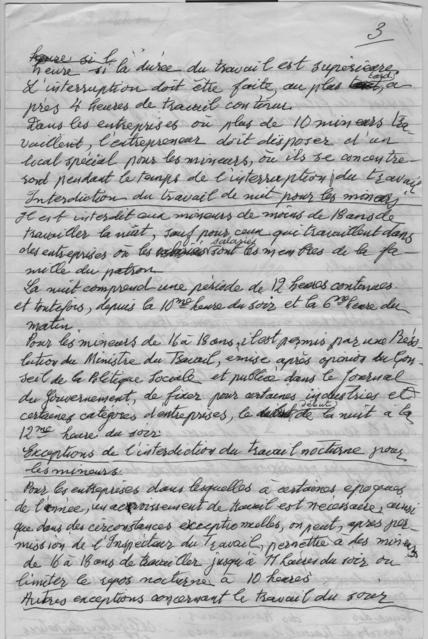 3
heure si la durée du travail est supérieure
L'interruption doit être faite, au plus tard, a
près 4 heures de travail continu.
Dans les entreprises où plus de 10 mineurs tra
vaillent, l'entrepreneur doit disposer d'un
local spécial pour les mineurs, où ils se concentre
ront pendant le temps de l'interruption du travail
Interdiction du travail de nuit pour les mineurs
Il est interdit aux mineurs de moins de 18 ans de
travailler la nuit, sauf pour ceux qui travaillent dans
des entreprises où les salariés sont les membres de la fa
mille du patron.
La nuit comprend une période de 12 heures continues
et toutefois, depuis la 10me heure du soir et la 6me heure du
matin.
Pour les mineurs de 16 à 18 ans, il est permis par une Réso
lution du Ministre du Travail, émise après opinion du Con
seil de la Politique Sociale et publiée dans le Journal
du Gouvernement, de fixer pour certaines industries et
certaines catégories d'entreprises, le début de la nuit a la
12me heure du soir.
Exceptions de l'interdiction du travail nocturne pour
les mineurs.
Pour les entreprises dans lesquelles à certaines époques
de l'année, un accroissement de travail est nécessaire, ainsi
que dans des circonstances exceptionnelles, on peut, après per
mission de l'Inspecteur du Travail, permettre à des mineurs
de 16 à 18 ans de travailler jusqu'à 11 heures du soir ou
limiter le repos nocturne à 10 heures
Autres exceptions concernant le travail du soir